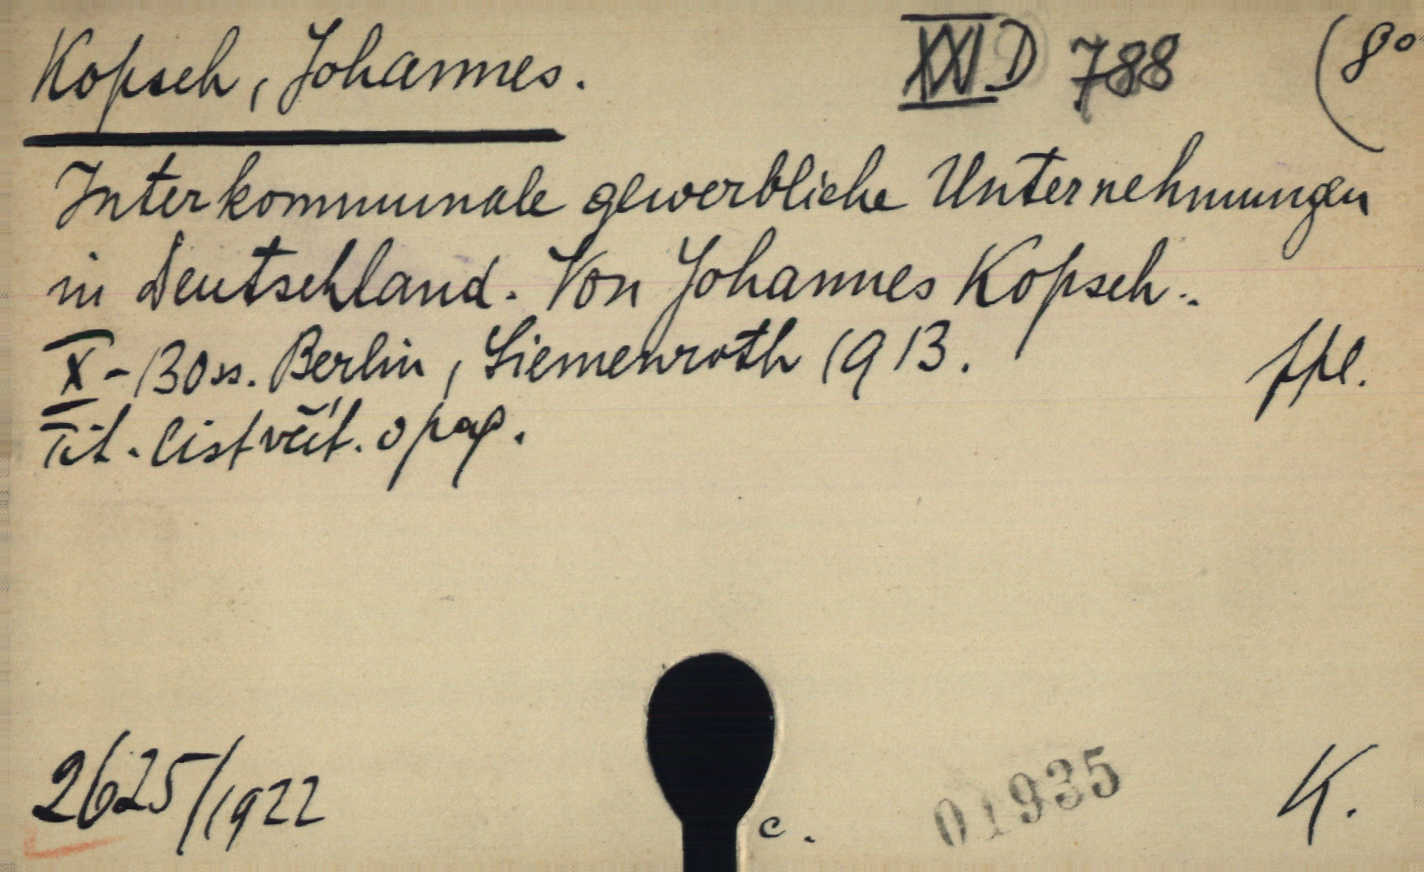 Kopsch, Johannes. XXI D 788 (8°
Interkommunale gewerbliche Unternehmungen
in Deutschland. Von Johannes Kopsch..
X-130 ss. Berlin, Siemenroth 1913. ppl.
Tit. list včít. o pag.
2625/1922 c. 01935 K.